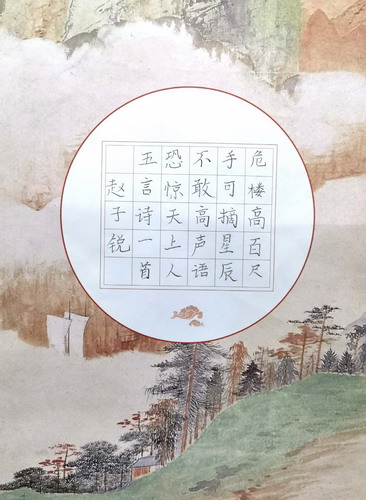 危楼高百尺
手可摘星辰
不敢高声语
恐惊天上人
五言诗一首
赵子锐